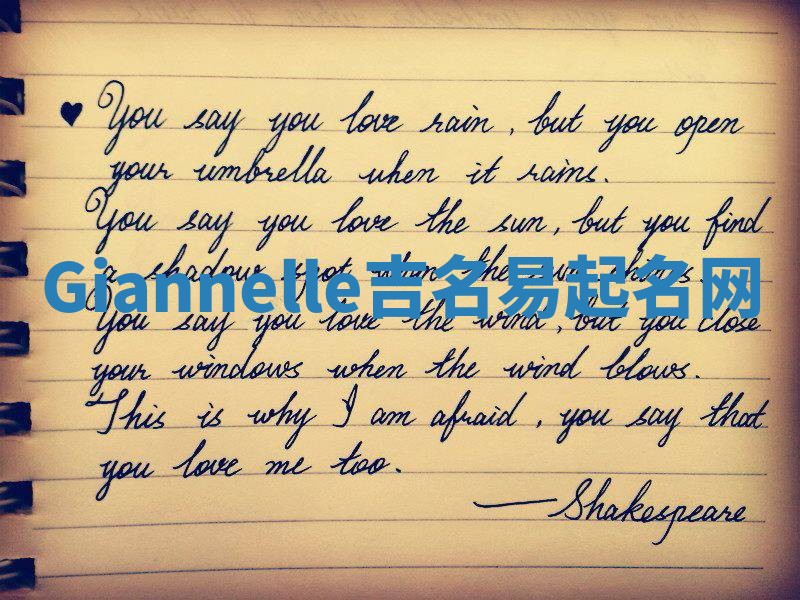 ♥ You say you love rain, but you open
your umbrella when it rains.
You say you love the sun, but you find
a shadow spot when the sun shines.
Giannelle吉名易起名网
You say you love the wind, but you close
your windows when the wind blows.
This is why I am afraid, you say that
you love me too.
—Shakespeare